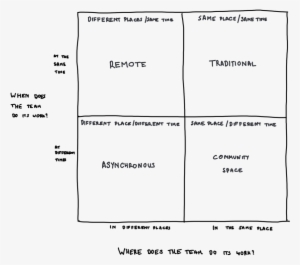 DIFFERENT PLACES/SAME TIME
SAME PLACE/SAME TIME
AT THE
SAME
TIME
REMOTE
TRADITIONAL
WHEN DOES
THE TEAM
DO ITS WORK?
DIFFERENT PLACE/DIFFERENT TIME
SAME PLACE/DIFFERENT TIME
AT
DIFFERENT
TIMES
ASYNCHRONOUS
COMMUNITY
SPACE
IN DIFFERENT PLACES
IN THE SAME PLACE
WHERE DOES THE TEAM DO ITS WORK?